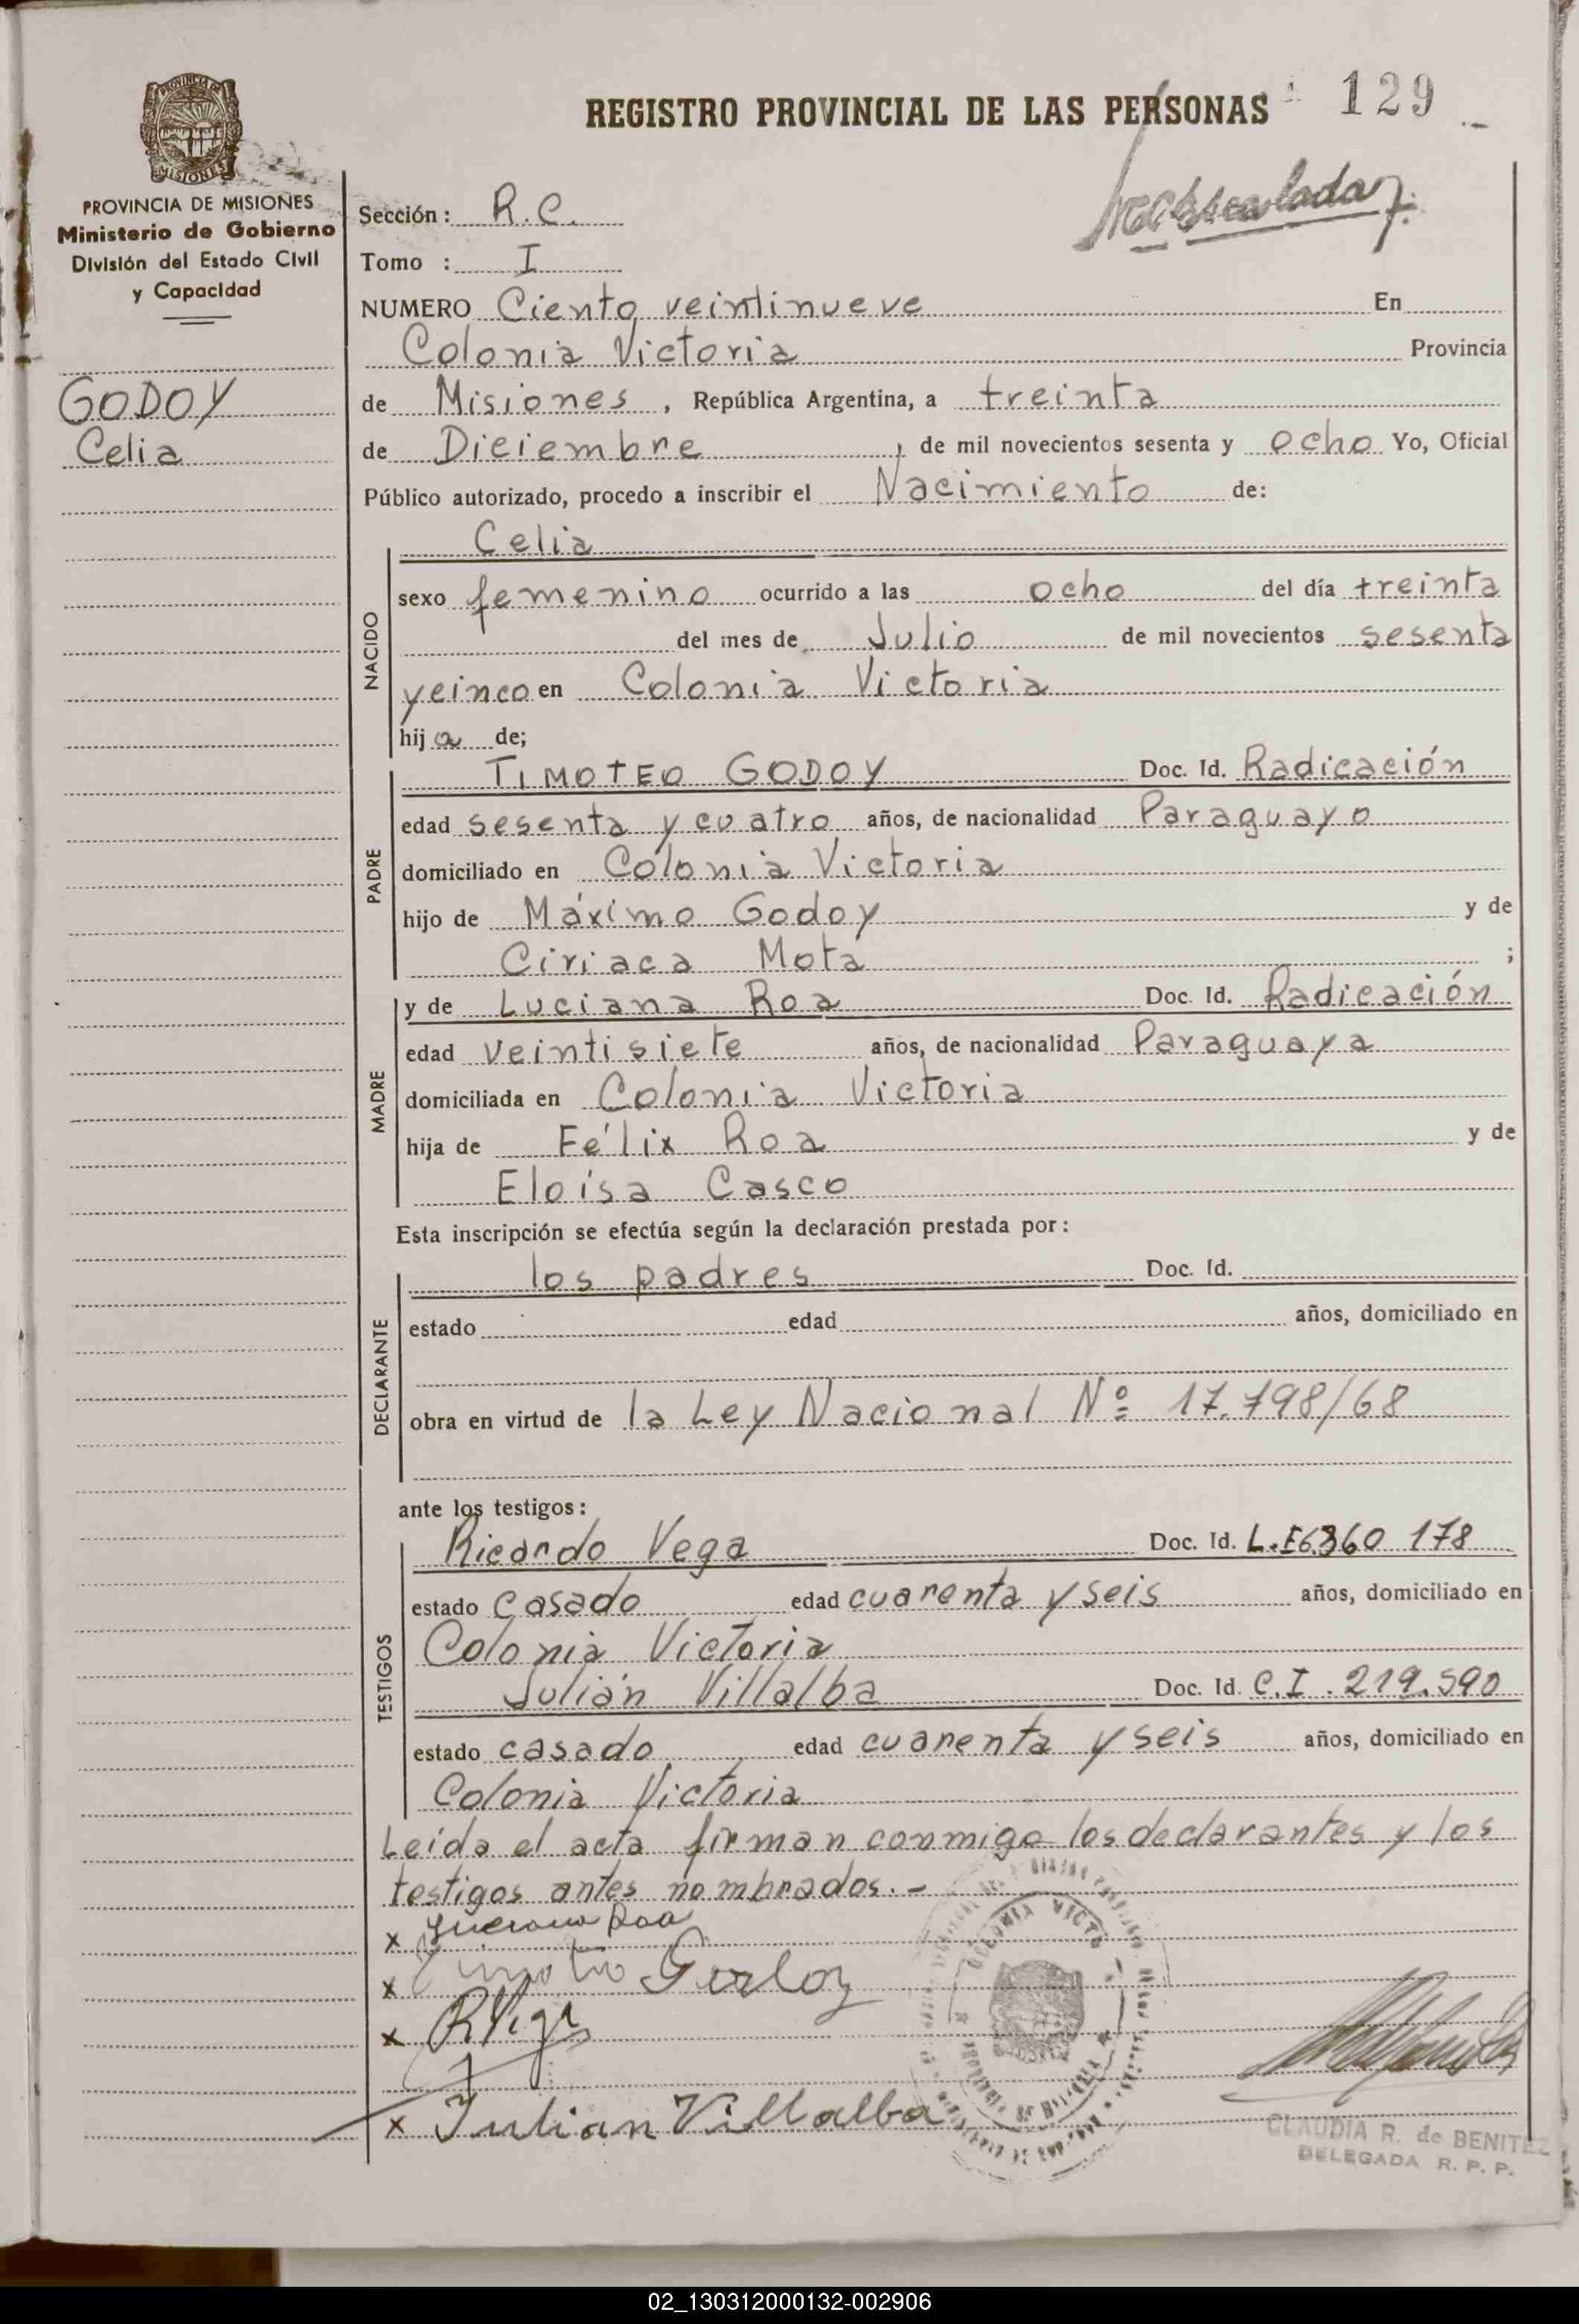 REGISTRO PROVINCIAL DE LAS PERSONAS 129
PROVINCIA DE MISIONES
MISIONES
PROVINCIA DE MISIONES
Ministerio de Gobierno
División del Estado Civil
y Capacidad
GODOY
Celia
Sección: R.C.
Tomo : I
NUMERO Ciento veintinueve En
Colonia Victoria Provincia
de Misiones, República Argentina, a treinta
de Diciembre, de mil novecientos sesenta y ocho Yo, Oficial
Público autorizado, procedo a inscribir el Nacimiento de:
NACIDO
Celia
sexo femenino ocurrido a las ocho del día treinta
del mes de Julio de mil novecientos sesenta
y cinco en Colonia Victoria
hija de;
PADRE
TIMOTEO GODOY Doc. Id. Radicación
edad sesenta y cuatro años, de nacionalidad Paraguayo
domiciliado en Colonia Victoria
hijo de Máximo Godoy y de
Ciriaca Mota ;
MADRE
y de Luciana Roa Doc. Id. Radicación
edad veintisiete años, de nacionalidad Paraguaya
domiciliada en Colonia Victoria
hija de Félix Roa y de
Eloísa Casco
Esta inscripción se efectúa según la declaración prestada por:
DECLARANTE
los padres Doc. Id.
estado edad años, domiciliado en
obra en virtud de la Ley Nacional Nº 17.798/68
ante los testigos:
TESTIGOS
Ricardo Vega Doc. Id. L.E 6.360 178
estado casado edad cuarenta y seis años, domiciliado en
Colonia Victoria
Julián Villalba Doc. Id. C.I. 219.590
estado casado edad cuarenta y seis años, domiciliado en
Colonia Victoria
Leída el acta firman conmigo los declarantes y los
testigos antes nombrados.-
x Luciana Roa
x
x RVega
x Julian Villalba
COLONIA VICTORIA
CLAUDIA R. de BENITEZ
DELEGADA R. P. P.
02_130312000132-002906